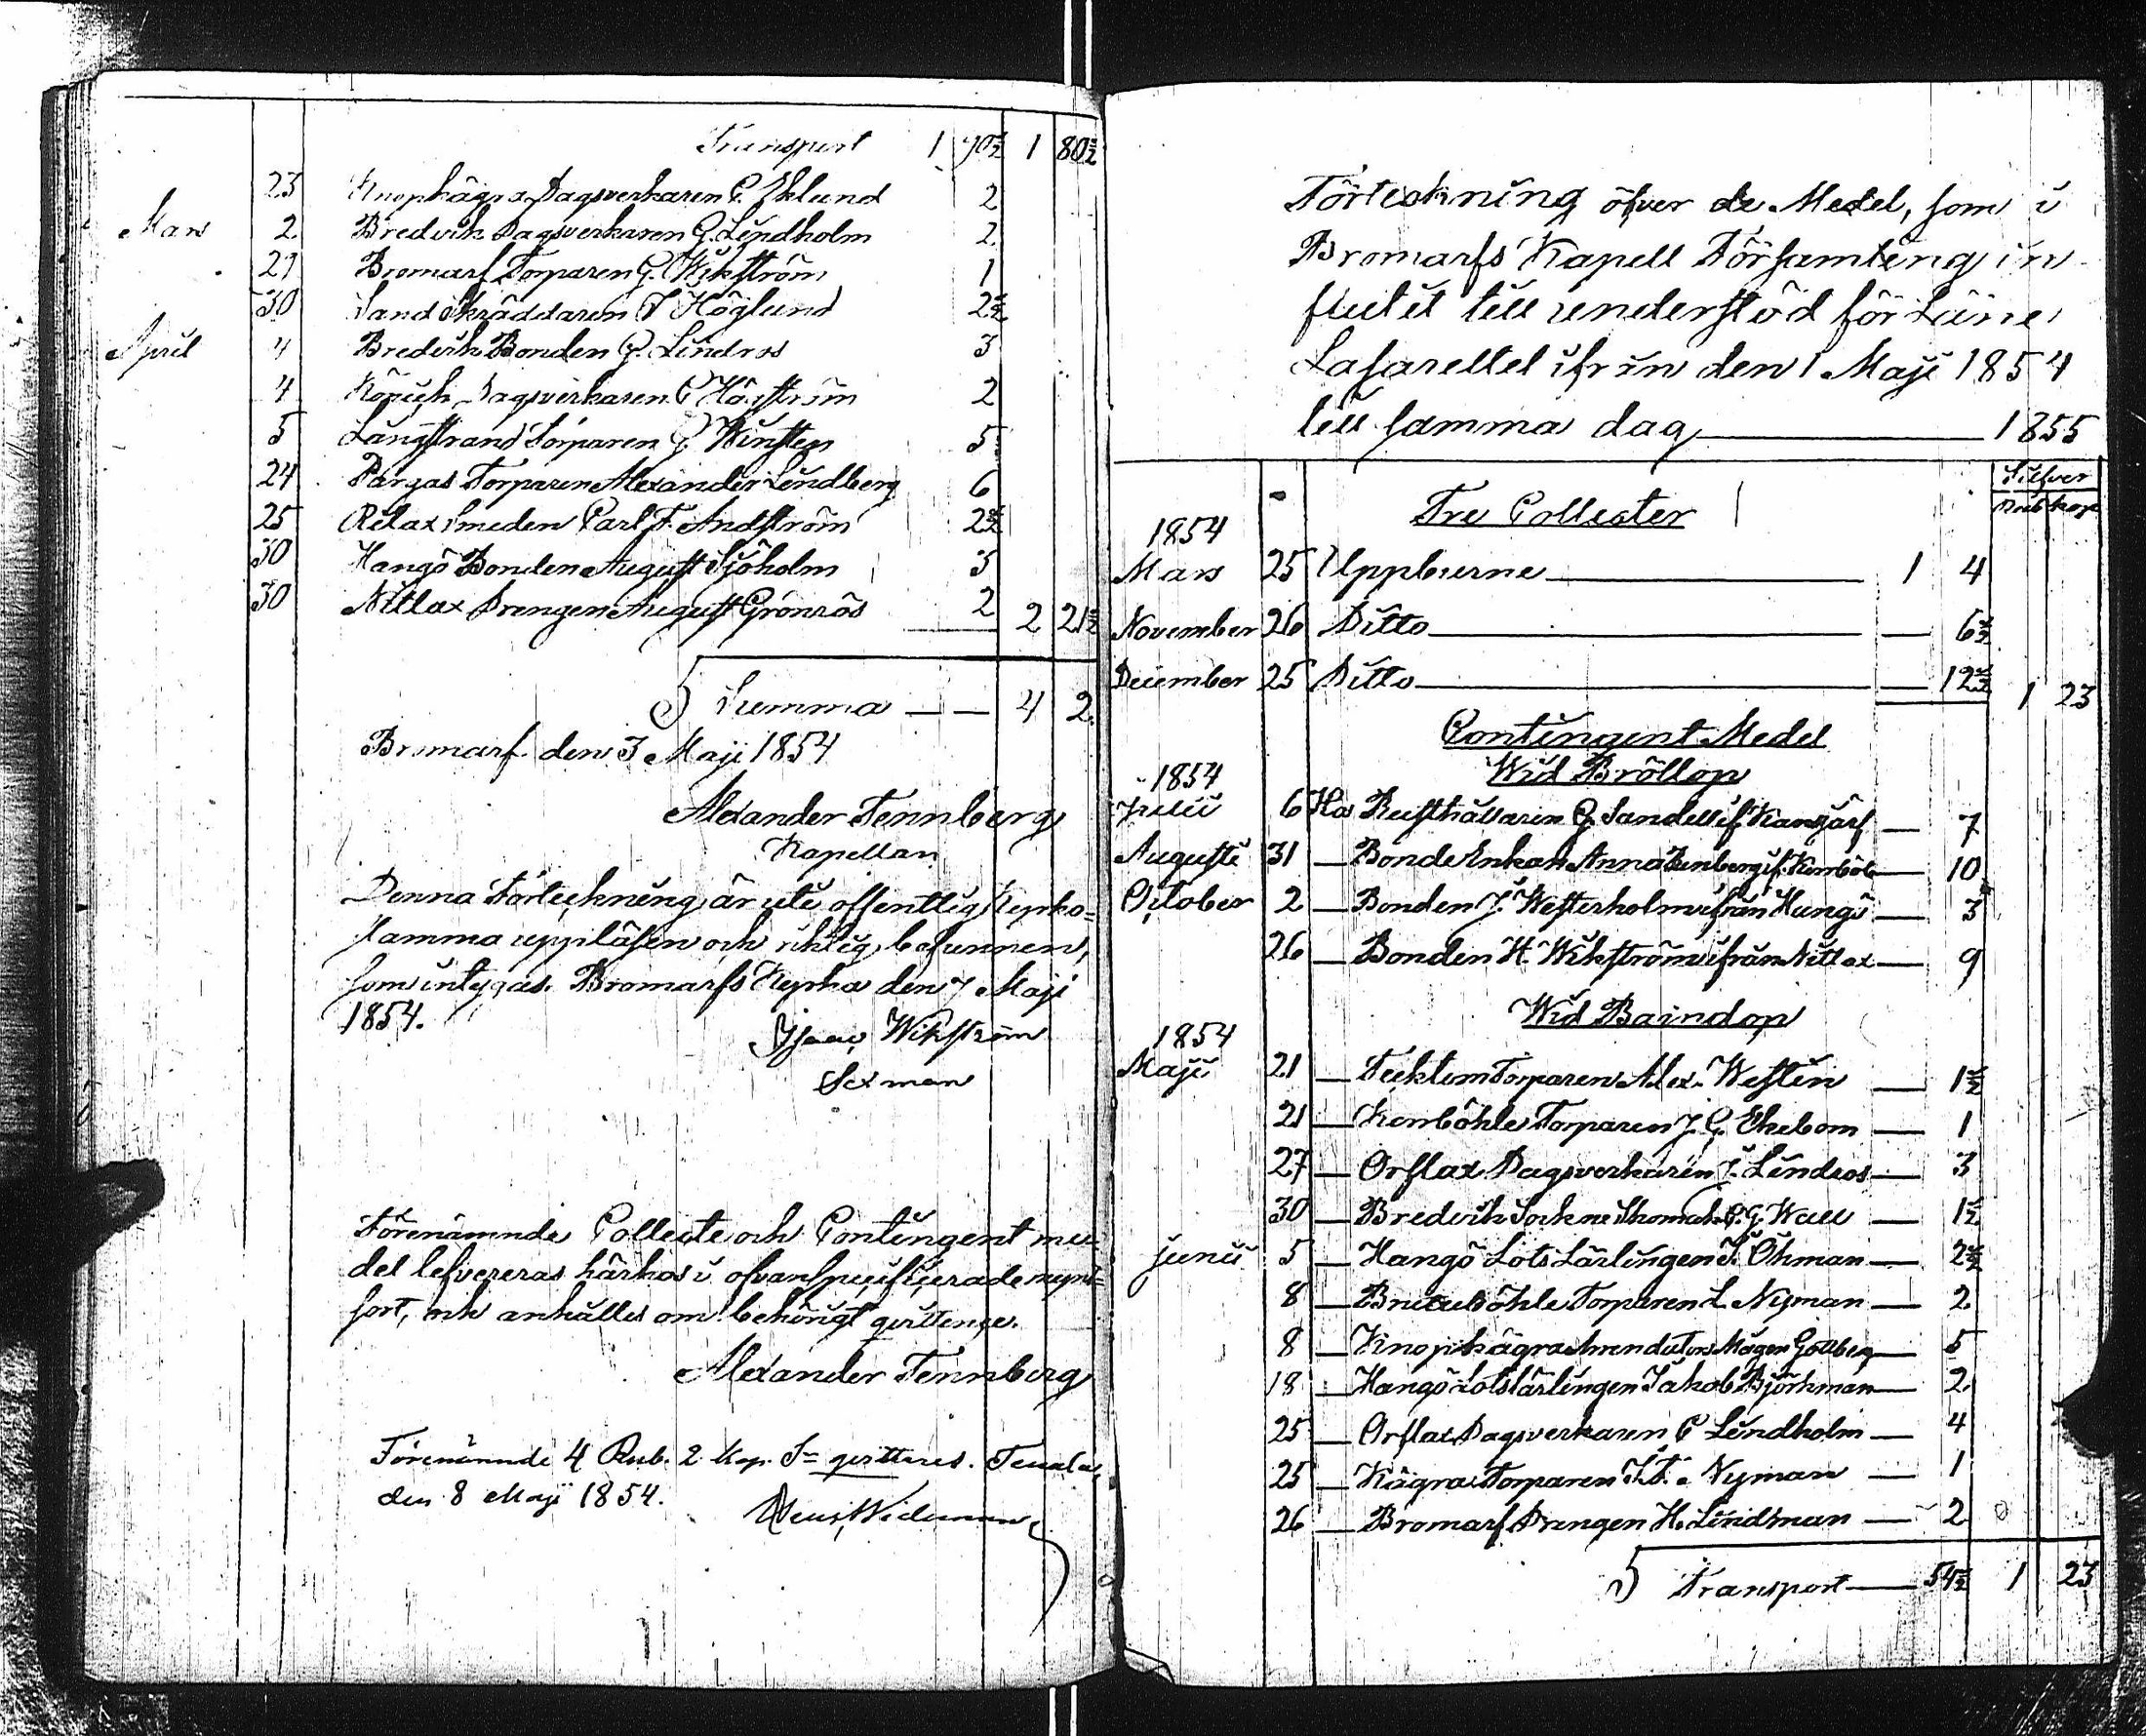 Transport 1 90½ 1 80½
23 Knopkägra Dagsverkaren C. Eklund 2
Mars 2 Bredvik Dagsverkaren G. Lindholm 2
21 Bromarf Torparen G. Wikström 1
30 Sand Skräddaren Höglund 2½
April 4 Bredvik Bonden G. Lindros 3
4 Dagsverkaren C Högström 2
5 Långstrand Torparen Winsten 5
24 Pargas Torparen Alexander Lindberg 6
25 Rilax Smeden Carl F. Andström 2½
30 Hangö Bonden August Sjöholm 3
30 Nitlax Drengen August Grönroos 2 2 21½
Summa — — 4 2
Bromarf den 3 Maji 1854
Alexander Tennberg
Kapellan
Denna Förteckning är uti offentlig Kyrko=
stamma uppläsen och riktig befunnen,
som intygas. Bromarfs Kyrka den 7 Maji
1854.
Isaac Wikström
Sexman
Förenämnde Collecte och Contingent me-
del lefvereras härhos i ofvanspecificerade mynt=
sort, och anhålles om behörigt qvittence.
Alexander Tennberg
Förenämnde 4 Rub. 2 Kop. Sr qvitteras. Tenala
den 8 Maji 1854.
Förteckning öfver de Medel, som i
Bromarfs Kapell Församling in
flutit till understöd för Läne
Lasarettet ifrån den 1 Maji 1854
till samma dag — 1855
Silfver
Tre Collecter Rub Kop
1854
Mars 25 Uppburne — 1 4
November 26 Ditto — — 6½
December 25 Ditto — — 12½ 1 23
Contingent Medel
Wid Bröllop
1854
Julii 6 Hos Rusthållaren G. Sandell if. Kansjärf — 7
Augusti 31 — Bonde Enkan Anna Enberg if. Kernböle — 10
October 2 — Bonden J. Westerholm ifrån Hangö — 3
26 — Bonden H. Wikström ifrån Nitlax — 9
Wid Barndop
1854
Maji 21 — Tecktom Torparen Alex. Westin — 1½
21 — Kernböhle Torparen J. G. Ekebom — 1
27 — Orslax Dagsverkaren J. Lindros — 3
30 — Bredvik Sockne Skomak. G. G. Wall — 1½
Junii 5 — Hangö Lots Lärlingen Öhman — 2½
8 — Torparen L. Nyman — 2
8 — Knopkägra Arrendatorn Mågen Gottberg — 5
18 — Hangö Lotslärlingen Jakob Björkman — 2
25 — Orslax Dagsverkaren C Lindholm — 4
25 — Kägra Torparen Nyman — 1
26 — Bromarf Drengen H. Lindman — 2
Transport — 54½ 1 23